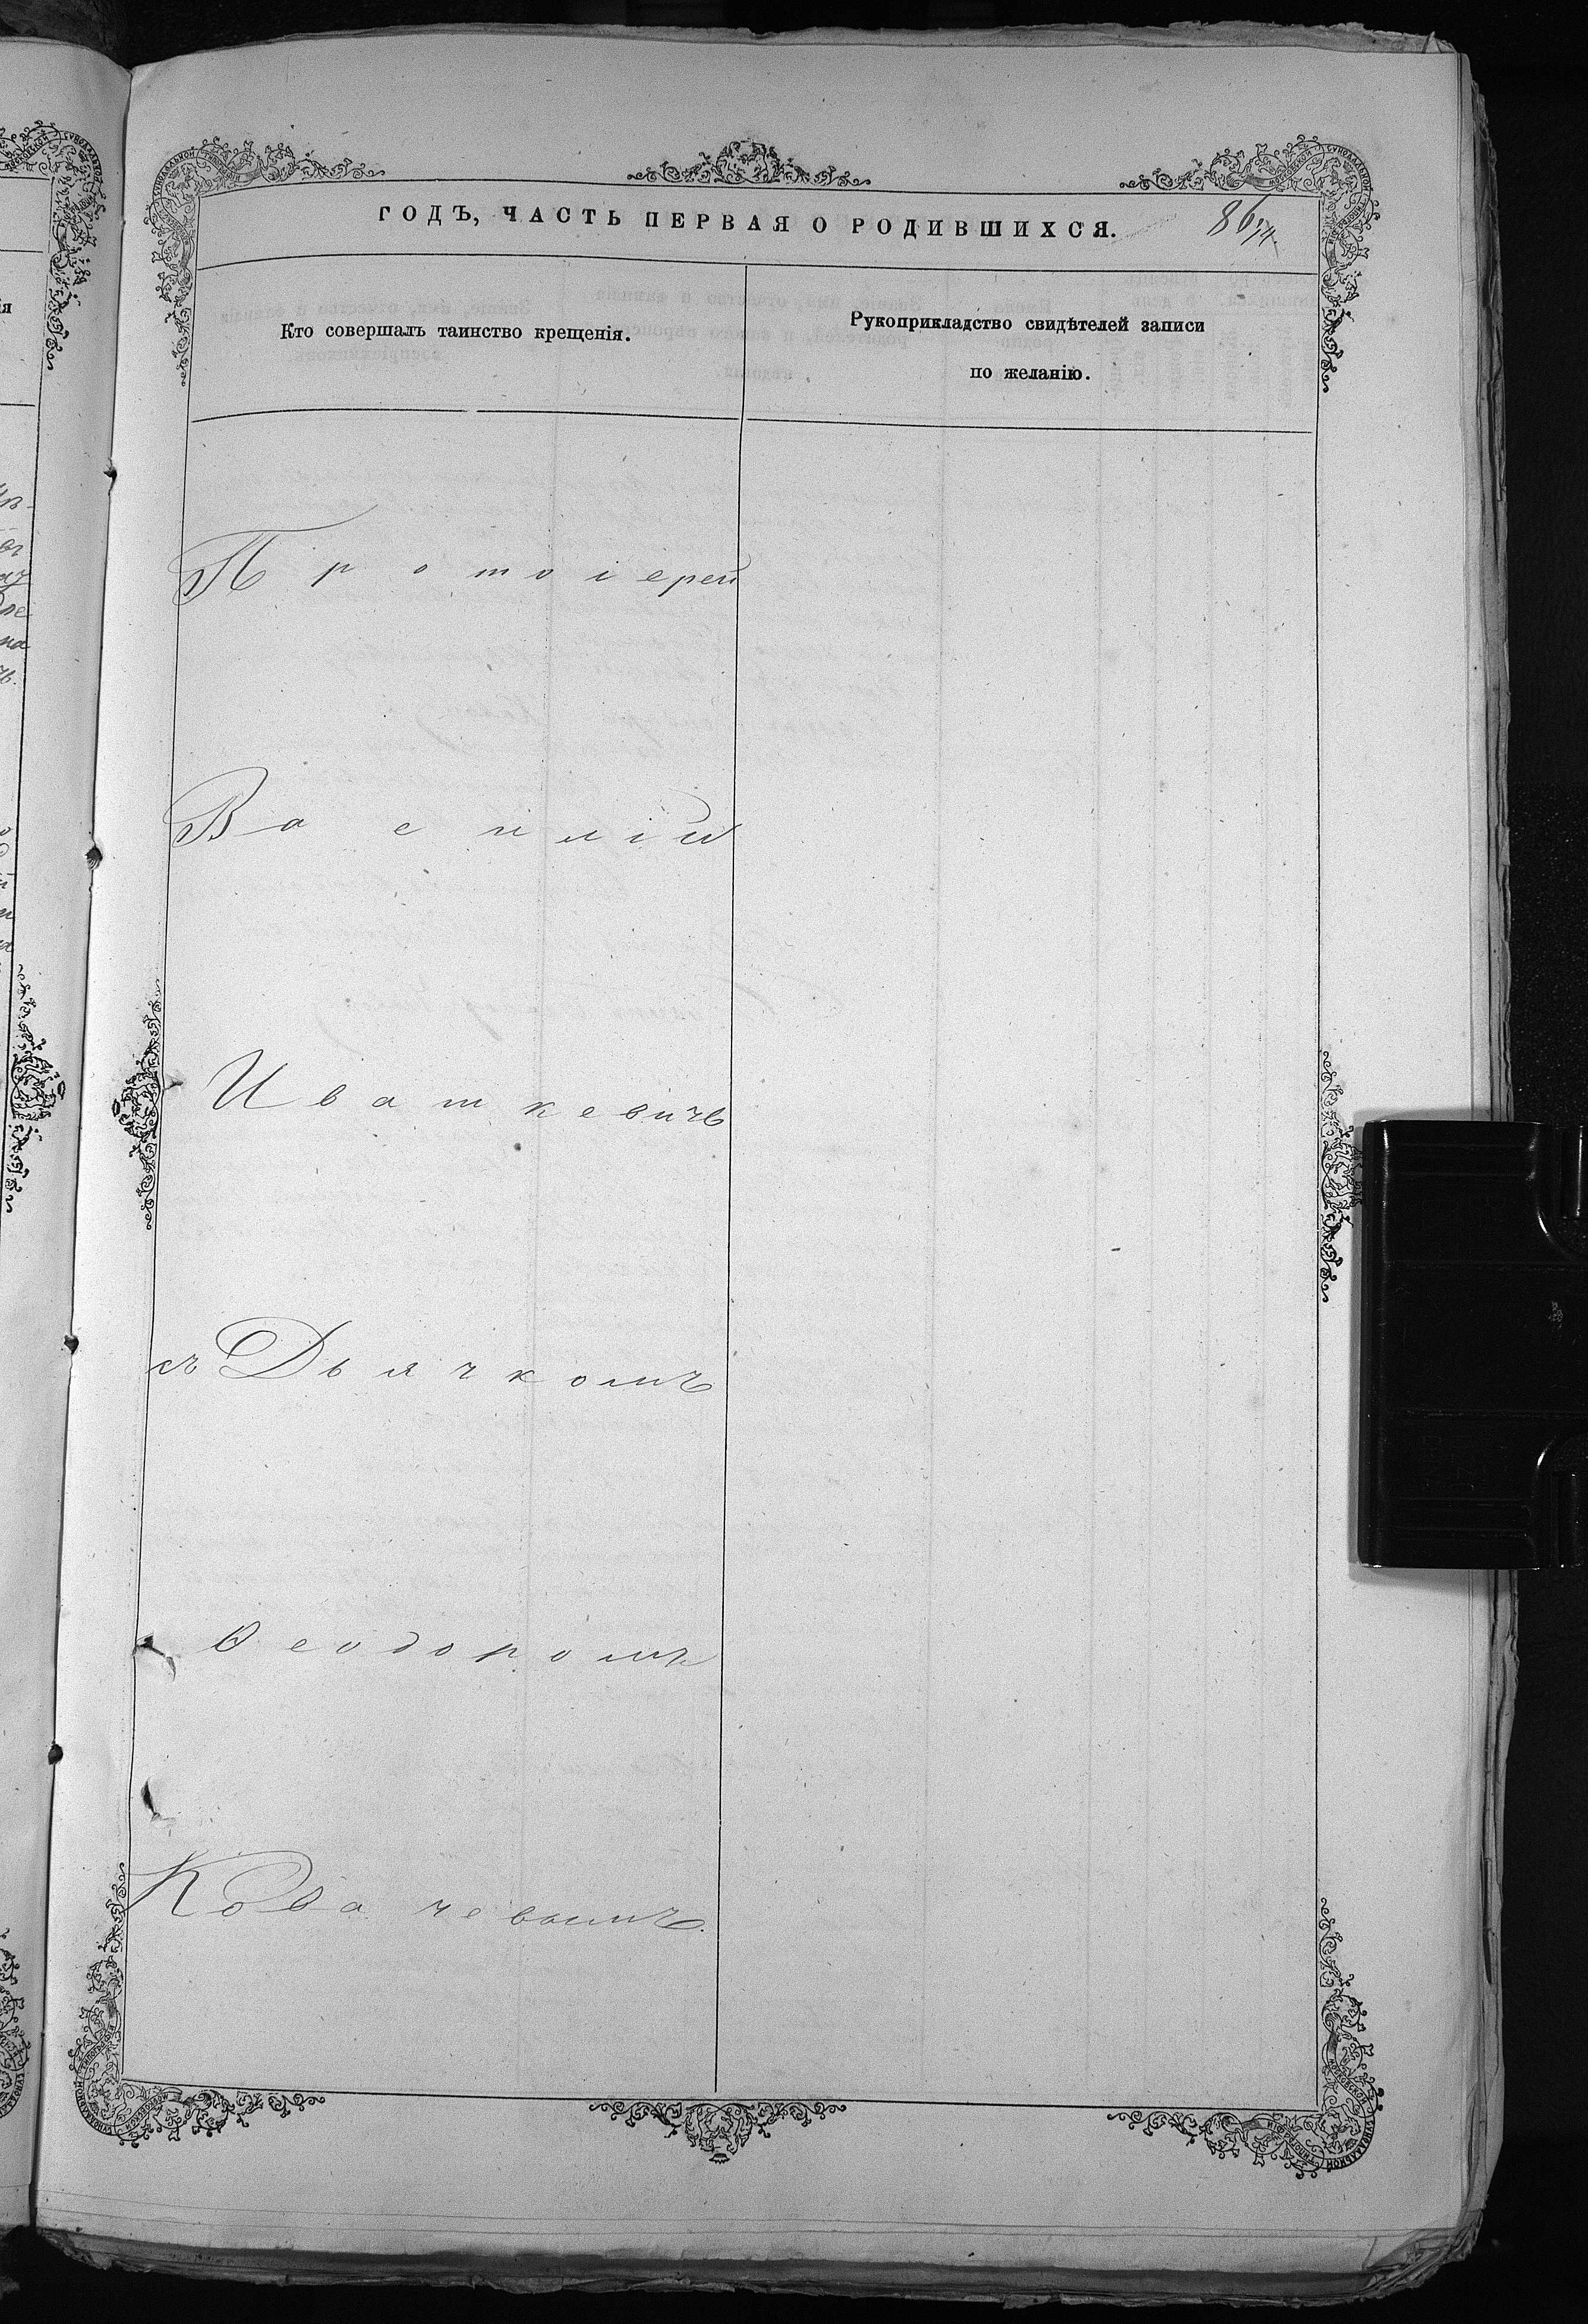 ГОДЪ, ЧАСТЬ ПЕРВАЯ О РОДИВШИХСЯ.
Кто совершалъ таинство крещенія.
Рукоприкладство свидѣтелей записи
по желанію.
Протоіерей
Василій
Ивашкевичъ
съ Дьячкомъ
Ѳеодоромъ
Ковачевымъ.